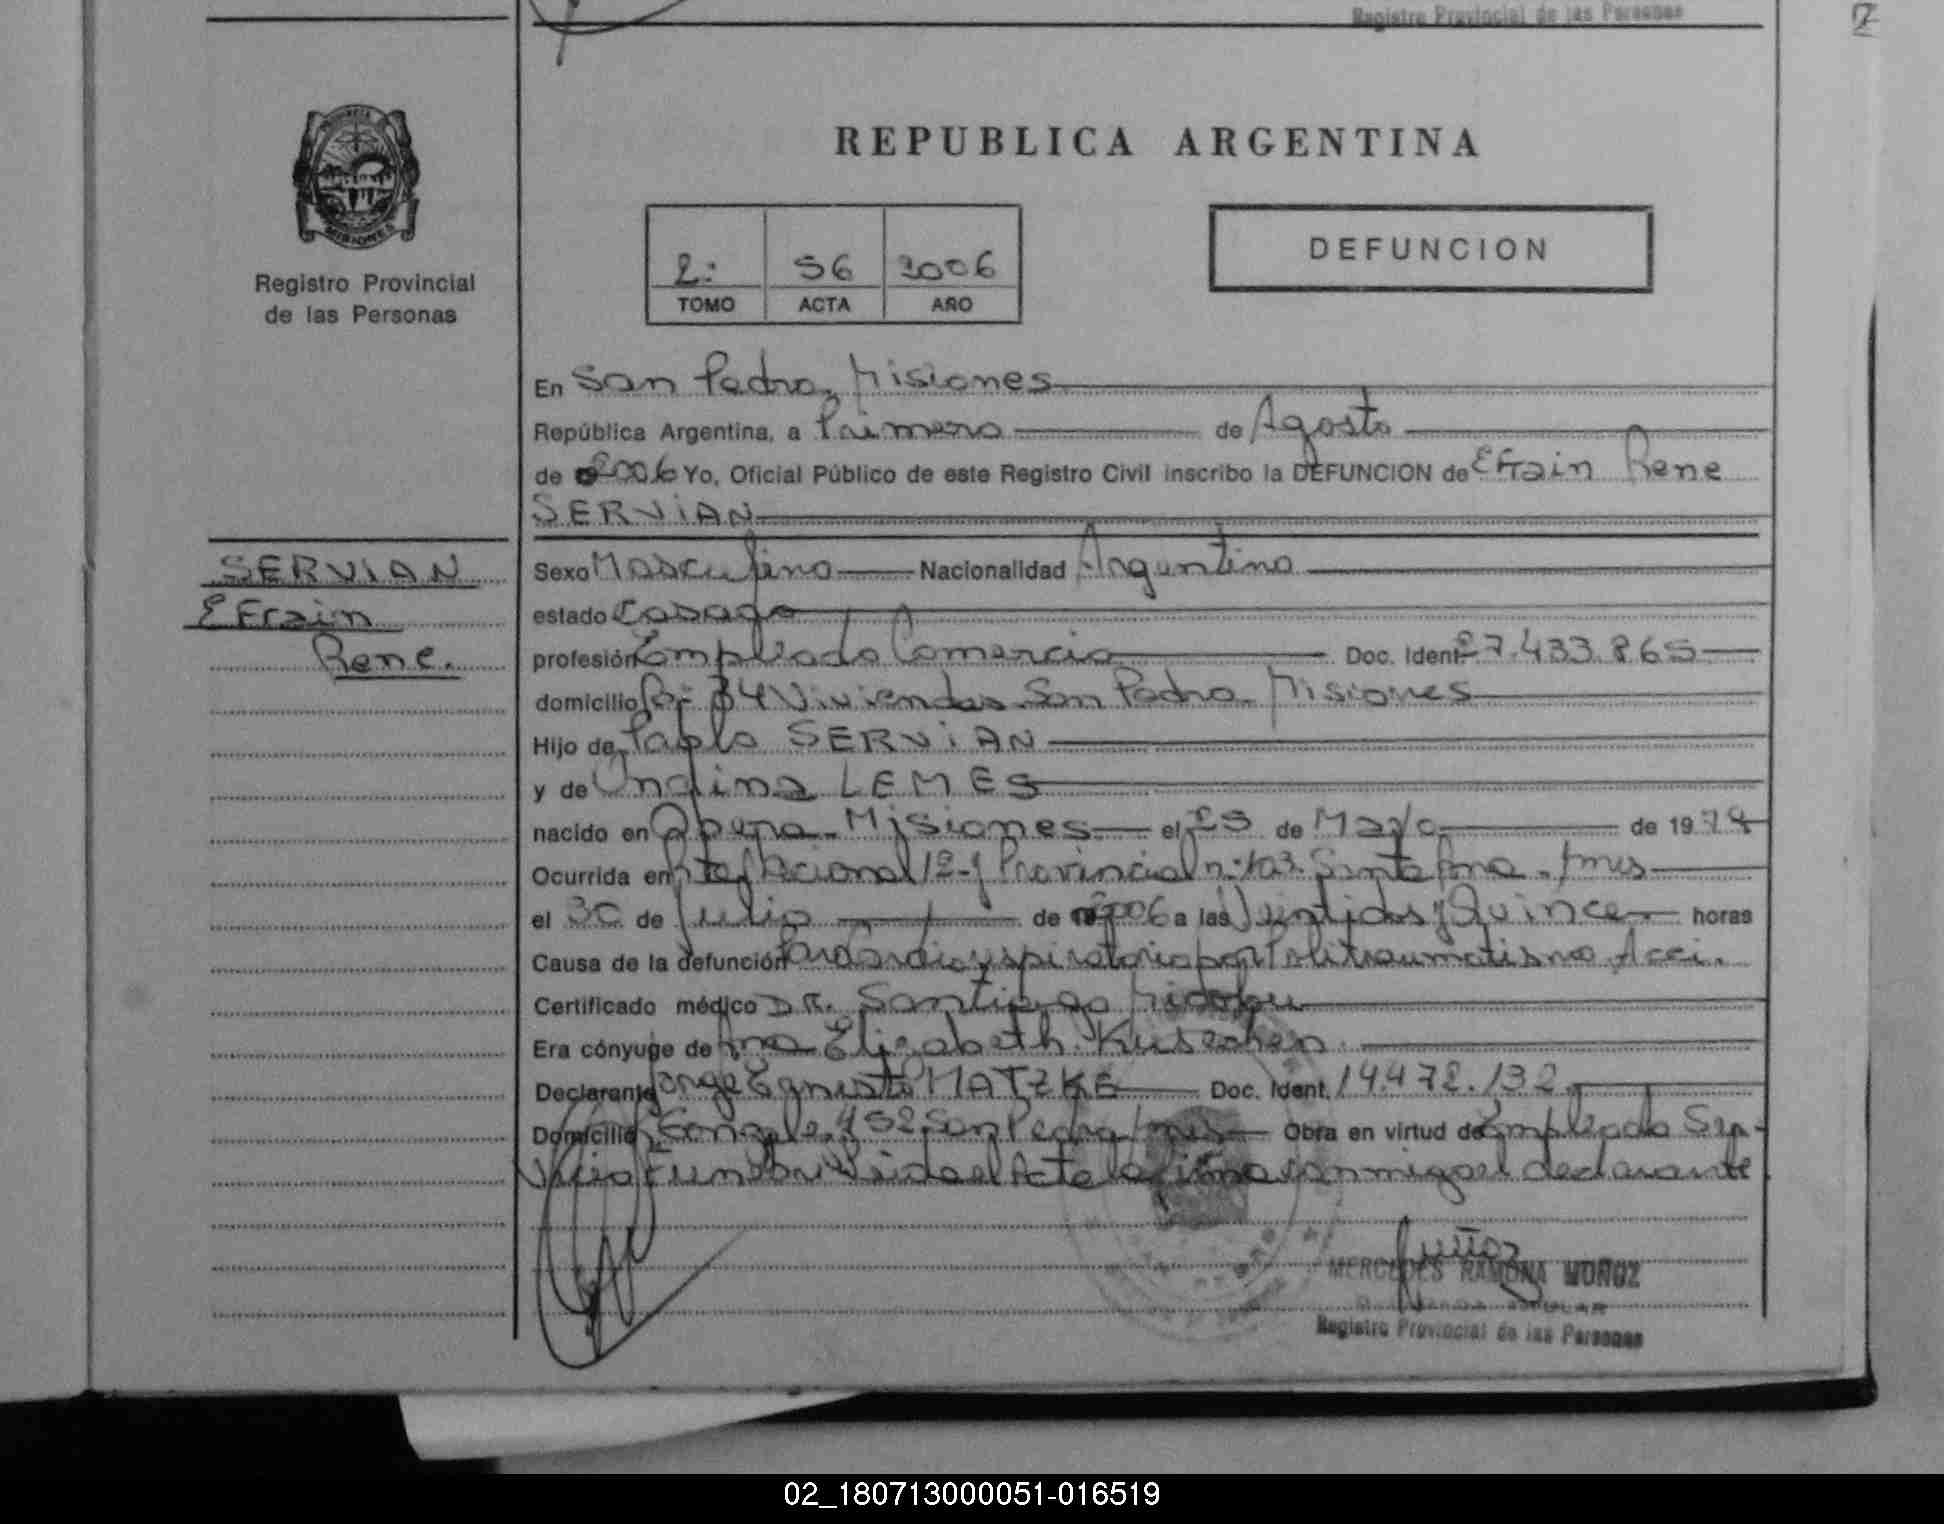 Registro Provincial de las Personas
REPUBLICA ARGENTINA
MISIONES
Registro Provincial
de las Personas
2: 56 2006
TOMO ACTA AÑO
DEFUNCION
En San Pedro, Misiones
República Argentina, a Primero de Agosto
de 2006 Yo, Oficial Público de este Registro Civil inscribo la DEFUNCION de Efrain Rene
SERViAN
SERVIAN
Efrain
Rene.
Sexo Masculino Nacionalidad Argentino
estado Casado
profesión Empleado Comercio Doc. Ident. 27.433.865
domicilio 34 Viviendas San Pedro Misiones
Hijo de Pablo SERViAN
y de Ondina LEMES
nacido en Obera - Misiones el 29 de Mayo de 19
Ocurrida en Rta Nacional 12 y Provincial n: 103 Santa Ana - Mnes
el 30 de Julio de 2006 a las Veintidos y Quince horas
Causa de la defunción Paro Cardiorespiratorio por Politraumatismo Acci.
Certificado médico DR. Santiago
Era cónyuge de Ana Elizabeth
Declarante Jorge Ernesto MATZKE Doc. Ident. 14.472.132
Domicilio 452 San Pedro Mnes Obra en virtud de Empleado Ser-
vicio Funebre Leida el Acta la firma conmigo el declarante
Muñoz
MERCEDES RAMONA MUÑOZ
Registro Provincial de las Personas
02_180713000051-016519